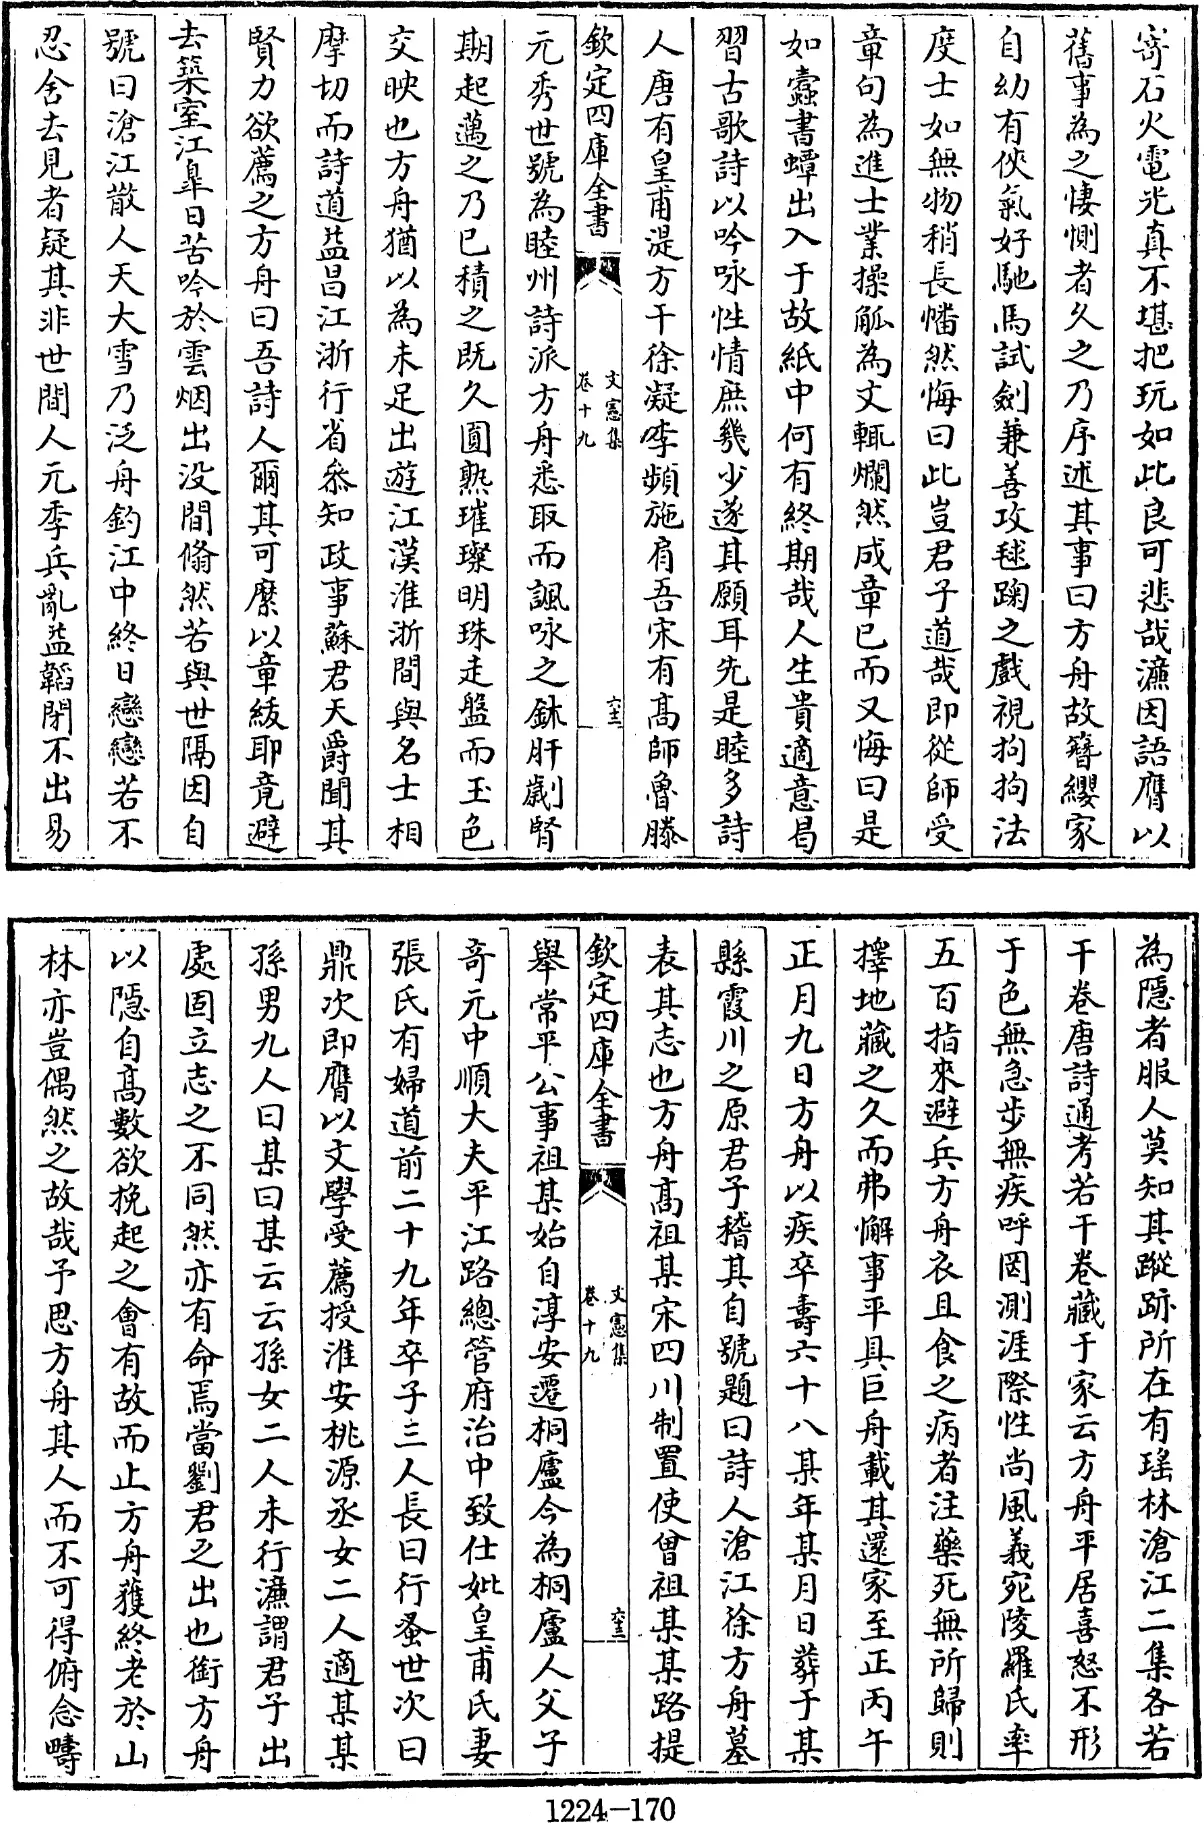 寄石火電光真不堪把玩如此良可悲哉濂因語膺以
舊事為之悽惻者久之乃序述其事曰方舟故簪纓家
自幼有俠氣好馳馬試劍兼善攻毬踘之戲視拘拘法
度士如無物稍長幡然悔曰此豈君子道哉即從師受
章句為進士業操觚為文輒爛然成章已而又悔曰是
如蠹書蟫出入于故紙中何有終期哉人生貴適意曷
習古歌詩以吟咏性情庶幾少遂其願耳先是睦多詩
人唐有皇甫湜方干徐凝李頻施肩吾宋有高師魯滕
欽定四庫全書
文憲集
卷十九
六十二
元秀世號為睦州詩派方舟悉取而諷咏之鉥肝劌腎
期起邁之乃已積之既久圓熟璀璨明珠走盤而玉色
交映也方舟猶以為未足出遊江漢淮浙間與名士相
摩切而詩道益昌江浙行省叅知政事蘇君天爵聞其
賢力欲薦之方舟曰吾詩人爾其可縻以章綬耶竟避
去築室江臯日苦吟於雲烟出没間翛然若與世隔因自
號曰滄江散人天大雪乃泛舟釣江中終日戀戀若不
忍舍去見者疑其非世間人元季兵亂益韜閉不出易
為隱者服人莫知其蹤跡所在有瑤林滄江二集各若
干卷唐詩通考若干卷藏于家云方舟平居喜怒不形
于色無急步無疾呼罔測涯際性尚風義宛陵羅氏率
五百指來避兵方舟衣且食之病者注藥死無所歸則
擇地藏之久而弗懈事平具巨舟載其還家至正丙午
正月九日方舟以疾卒壽六十八某年某月日葬于某
縣霞川之原君子稽其自號題曰詩人滄江徐方舟墓
表其志也方舟高祖某宋四川制置使曾祖某某路提
欽定四庫全書
文憲集
卷十九
六十三
舉常平公事祖某始自淳安遷桐廬今為桐廬人父子
奇元中順大夫平江路總管府治中致仕妣皇甫氏妻
張氏有婦道前二十九年卒子三人長曰行蚤世次曰
鼎次即膺以文學受薦授淮安桃源丞女二人適某某
孫男九人曰某曰某云云孫女二人未行濂謂君子出
處固立志之不同然亦有命焉當劉君之出也銜方舟
以隱自高數欲挽起之會有故而止方舟獲終老於山
林亦豈偶然之故哉予思方舟其人而不可得俯念疇
1224-170